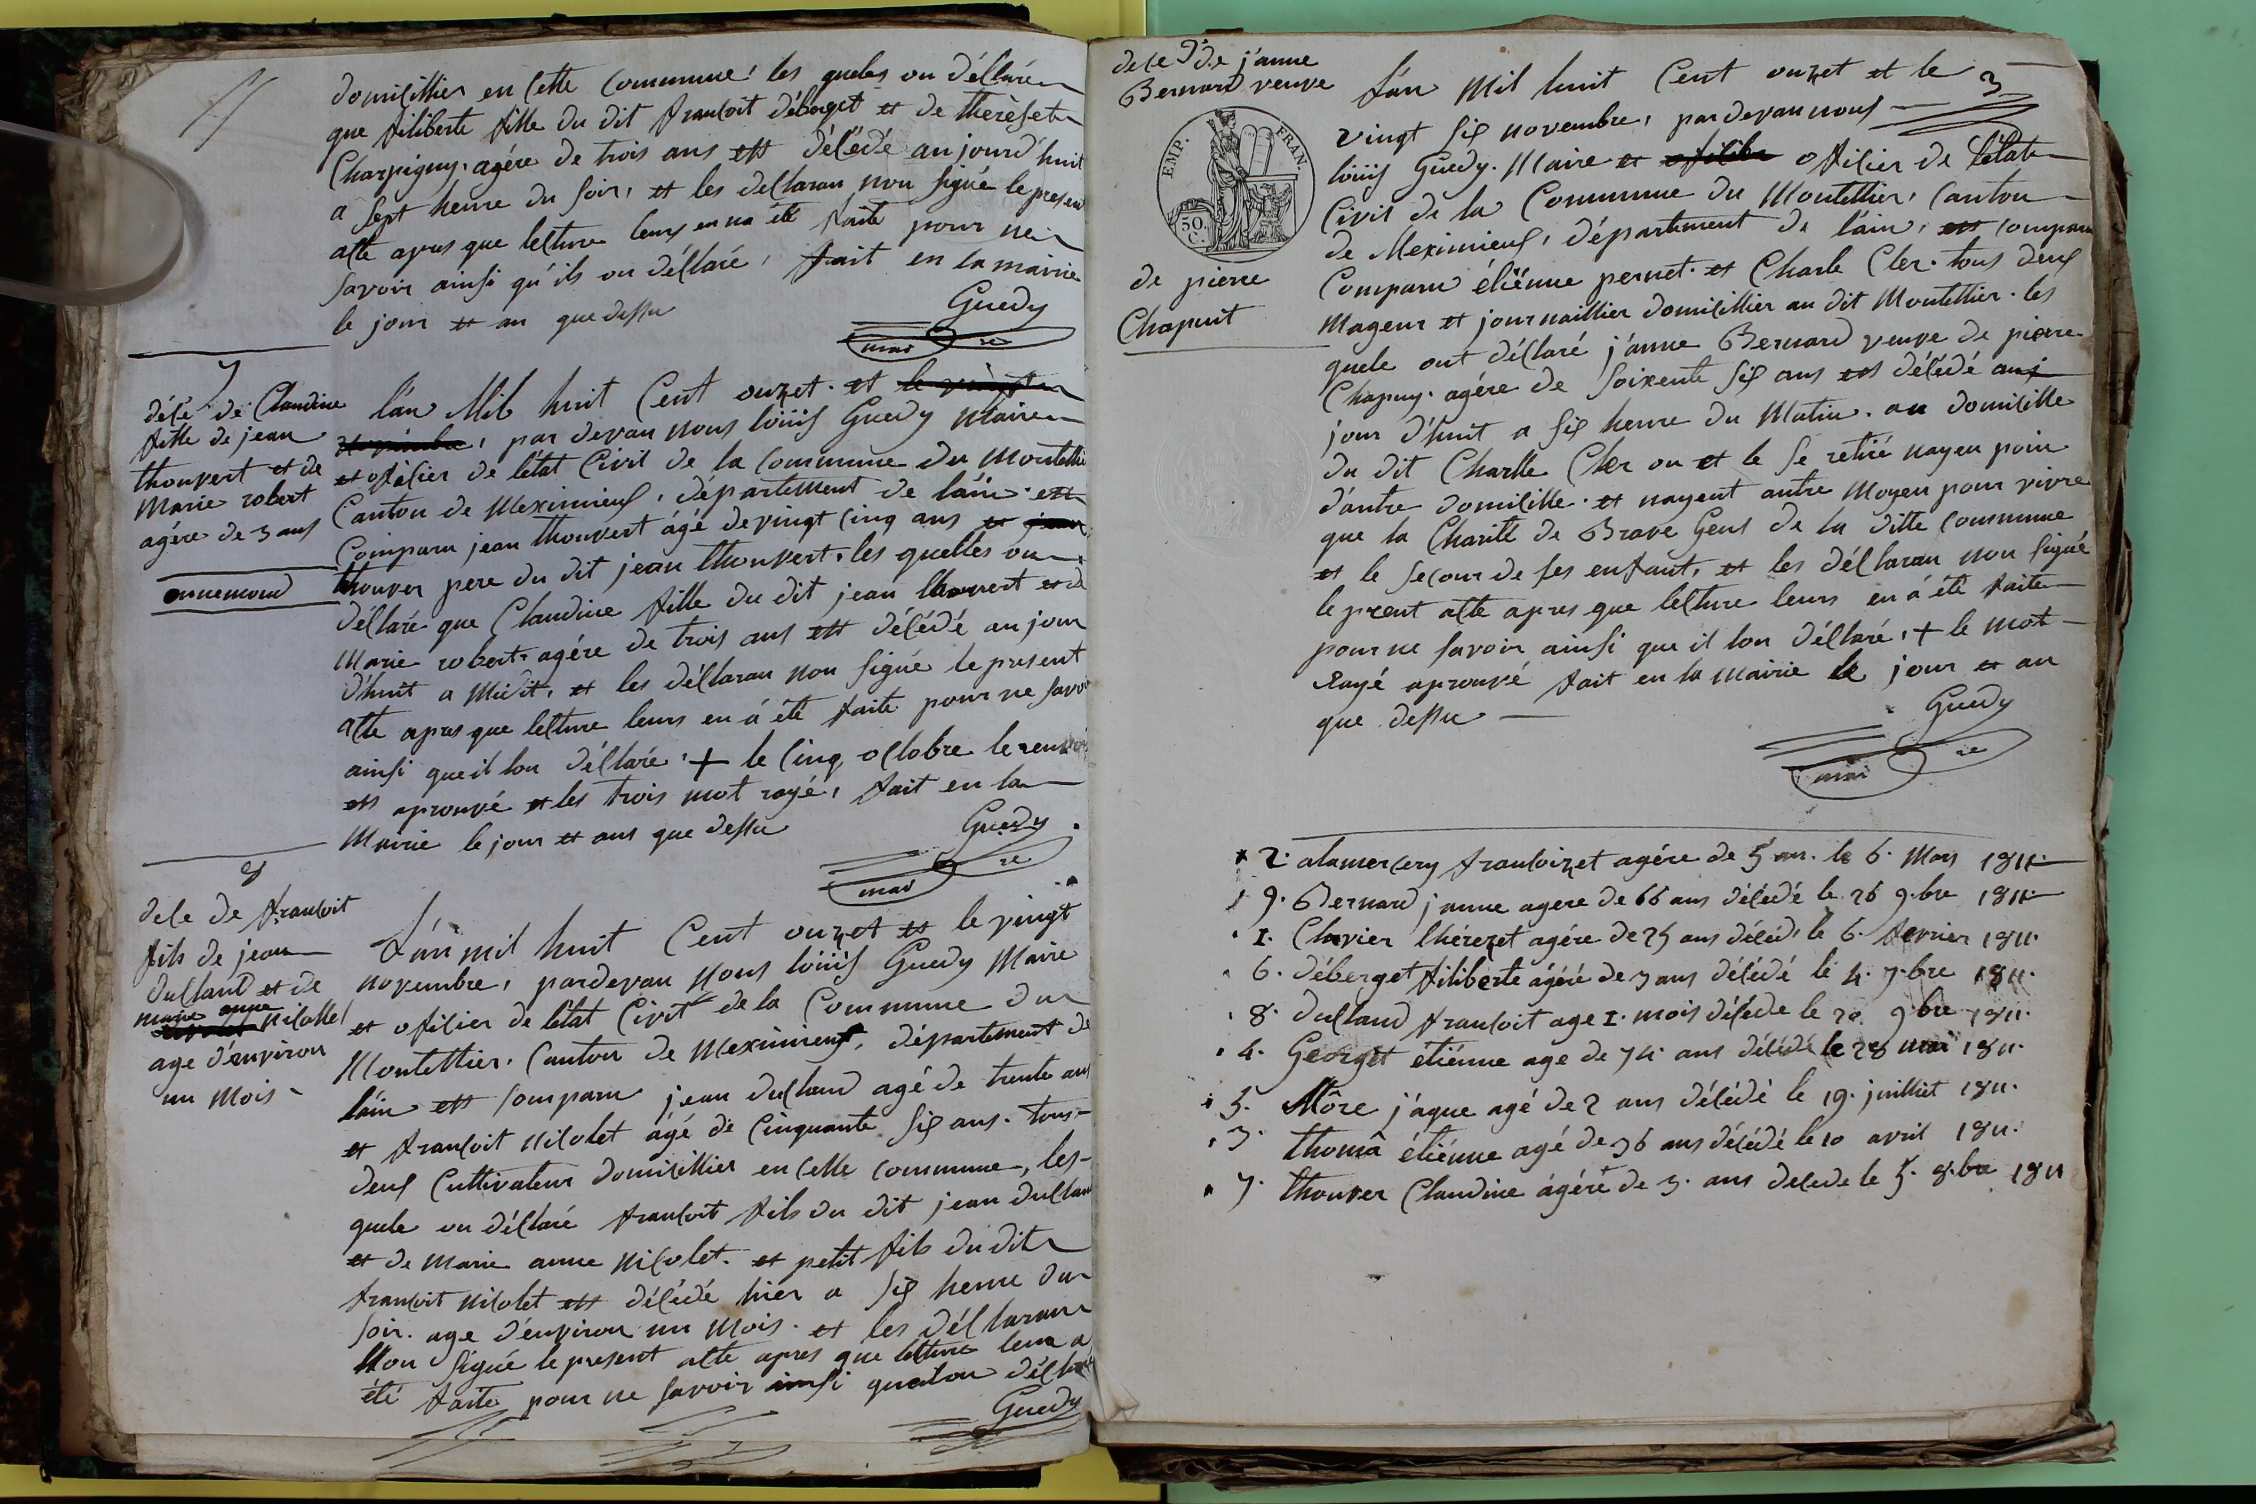 domicillier en cette commune, les queles on déllaré
que filiberte fille du dit françoit déberget et de thereset
Charpigny, agére de trois ans est délédé aujourd'huit
a sept heure du soir, et les dellaran non signé le presen
atte apres que lecture leurs en na été faite pour ne
savoir ainsi qu'ils on déllaré, fait en la mairie
le jour et an que dessu
Guedy
maire
7
délé de Claudine
fille de jean
thouvert et de
Marie robert
agére de 3 ans
ennemond
l'an Mil huit Cent onzet et le vingt
par devan nous loüis Guedy Maire
et ofilier de l'état Civil de la commune du Montellié
Canton de Meximieux, département de l'ain est
Comparu jean thouvert âgé de vingt cinq ans et jean
thouver pere du dit jean thouvert, les quelles on
déllaré que Claudine fille du dit jean thouvert et de
Marie robert, agére de trois ans est délédé au jour
d'huit a Midit, et les déllaran non signé le present
atte apres que lecture leurs en á été faite pour ne savoi
ainsi que il lon déllaré + le cinq octobre le renvoi
est aprouvé et les trois mot rayé, fait en la
Mairie le jour et ans que dessu
Guedy
maire
8
dele de françoit
fils de jean
dulland et de
marie anne nicollet
age d'environ
un mois
L'an mil huit Cent onzet et le vingt
novembre, pardevan nous loüis Guedy Maire
et ofilier de l'état Civil de la Commune du
Montellier, Canton de Meximieux, département de
l'ain est comparu jean dulland agé de trente ans
et françoit nicolet âgé de cinquante six ans, tous
deux Cultivateur domicillier en cette commune, les
quele on déllaré françoit fils du dit jean dulland
et de marie anne nicolet, et petit fils du dit
françoit nicolet est délédé hier a six heure du
soir, age d'environ un mois, et les déllaran
Non signé le present atte apres que lecture leur a
été faite pour ne savoir ainsi que il on déllaré
Guedy
dele de j'anne
Bernard veuve
EMP. FRAN.
50. C.
de pierre
Chapuit
l'an Mil huit Cent onzet et le
vingt six novembre, par devan nous
loüis Guedy, Maire et ofilier de l'état
Civil de la Commune du Montellier, Canton
de Meximieux, département de l'ain, est compar
Comparu étiénne pernet, et Charle Cler, tous deux
Mageur et journaillier domicillier au dit Montellier, les
quele ont déllaré j'anne Bernard veuve de pierre
Chapuy, agére de soixente six ans est délédé auj
jour d'huit a six heure du Matin, au domicille
du dit Charlle Cler ou et le se retiré nayen poin
d'autre domicille, et nayent autre Moyen pour vivre
que la Charité de Brave Gens de la ditte Commune
et le secour de ses enfant, et les déllaran non signé
le prent atte apres que lécture leurs en á été faite
pour ne savoir ainsi que il lon déllaré, + le mot
Rayé aprouvé fait en la Mairie le jour et an
que dessu
Guedy
maire
2. alamercery françoizet agére de 5 an. le 6. Mars 1811.
9. Bernard janne agere de 66 ans délédé le 26 9.bre 1811
1. Clavier thérezet agére de 25 ans délédé le 6. fevrier 1811.
6. déberget filiberte ágéré de 3 ans délédé le 4. 7.bre 1811.
8. dulland françoit age 1. mois délédé le 20 9bre 1811.
4. Georget étiénne age de 74. ans délédé le 28 mai 1811.
5. Môre j'aque agé de 2 ans délédé le 19. juilliet 1811.
3. thomâ étiénne agé de 36 ans délédé le 10 avril 1811.
7. thouver Claudine ágéré de 3. ans delede le 5. 8.bre 1811